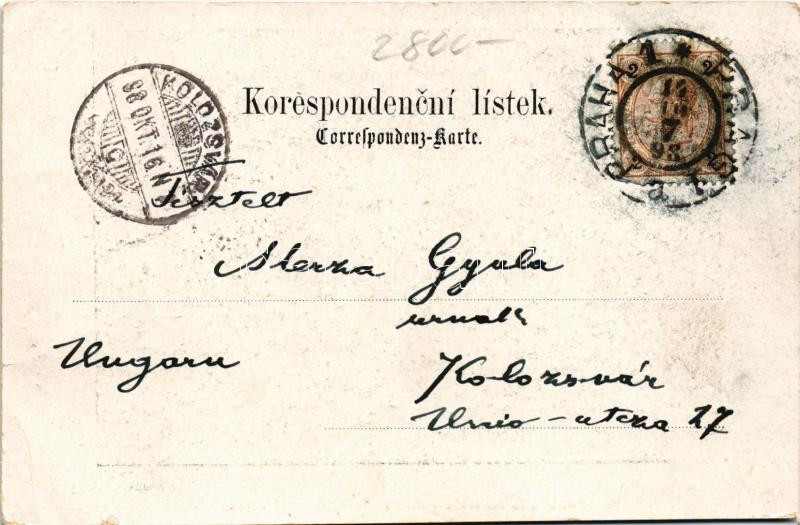 2800-
Korespondenční lístek.
Correspondenz-Karte.
KOLOZSVÁR
98 OKT. 16. N
PRAHA 1 * PRAG
14
10
7
98
Tisztelt
Merza Gyula
urnak
Ungarn
Kolozsvár
Unio-utcza 27